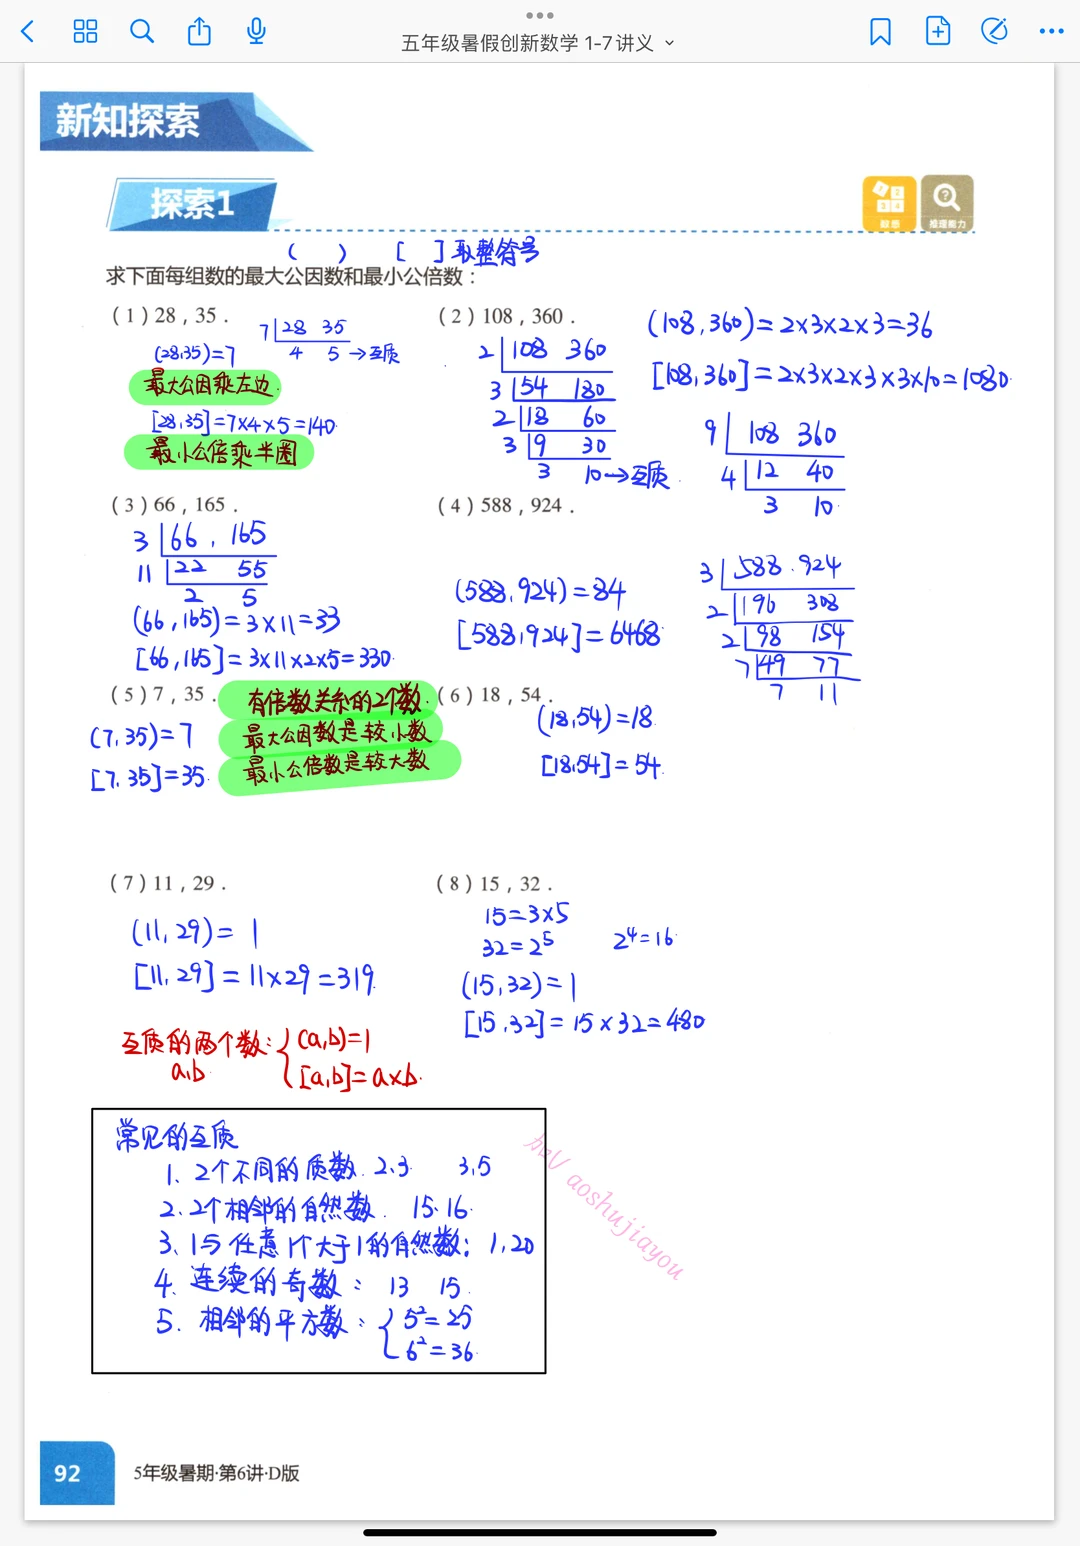 五年级暑假创新数学 1-7讲义
新知探索
探索1
数感
推理能力
( ) [ ]取整符号
求下面每组数的最大公因数和最小公倍数：
(1) 28，35．
7 28 35
4 5→互质
(28,35)=7
最大公因乘左边
[28,35]=7×4×5=140
最小公倍乘半圈
(2) 108，360．
2 108 360
3 54 180
2 18 60
3 9 30
3 10→互质
(108,360)=2×3×2×3=36
[108,360]=2×3×2×3×3×10=1080
9 108 360
4 12 40
3 10
(3) 66，165．
3 66，165
11 22 55
2 5
(66,165)=3×11=33
[66,165]=3×11×2×5=330
(4) 588，924．
(588,924)=84
[588,924]=6468
3 588.924
2 196 308
2 98 154
7 49 77
7 11
(5) 7，35．
有倍数关系的2个数
最大公因数是较小数
最小公倍数是较大数
(7,35)=7
[7,35]=35
(6) 18，54．
(18,54)=18
[18,54]=54
(7) 11，29．
(11,29)=1
[11,29]=11×29=319
(8) 15，32．
15=3×5
32=2⁵ 2⁴=16
(15,32)=1
[15,32]=15×32=480
互质的两个数：(a,b)=1
a,b [a,b]=a×b
常见的互质
1、2个不同的质数 2、3 3、5
2、2个相邻的自然数 15、16
3、1与任意1个大于1的自然数：1,20
4、连续的奇数： 13 15
5、相邻的平方数：5²=25
6²=36
aoshujiayou
92
5年级暑期·第6讲·D版